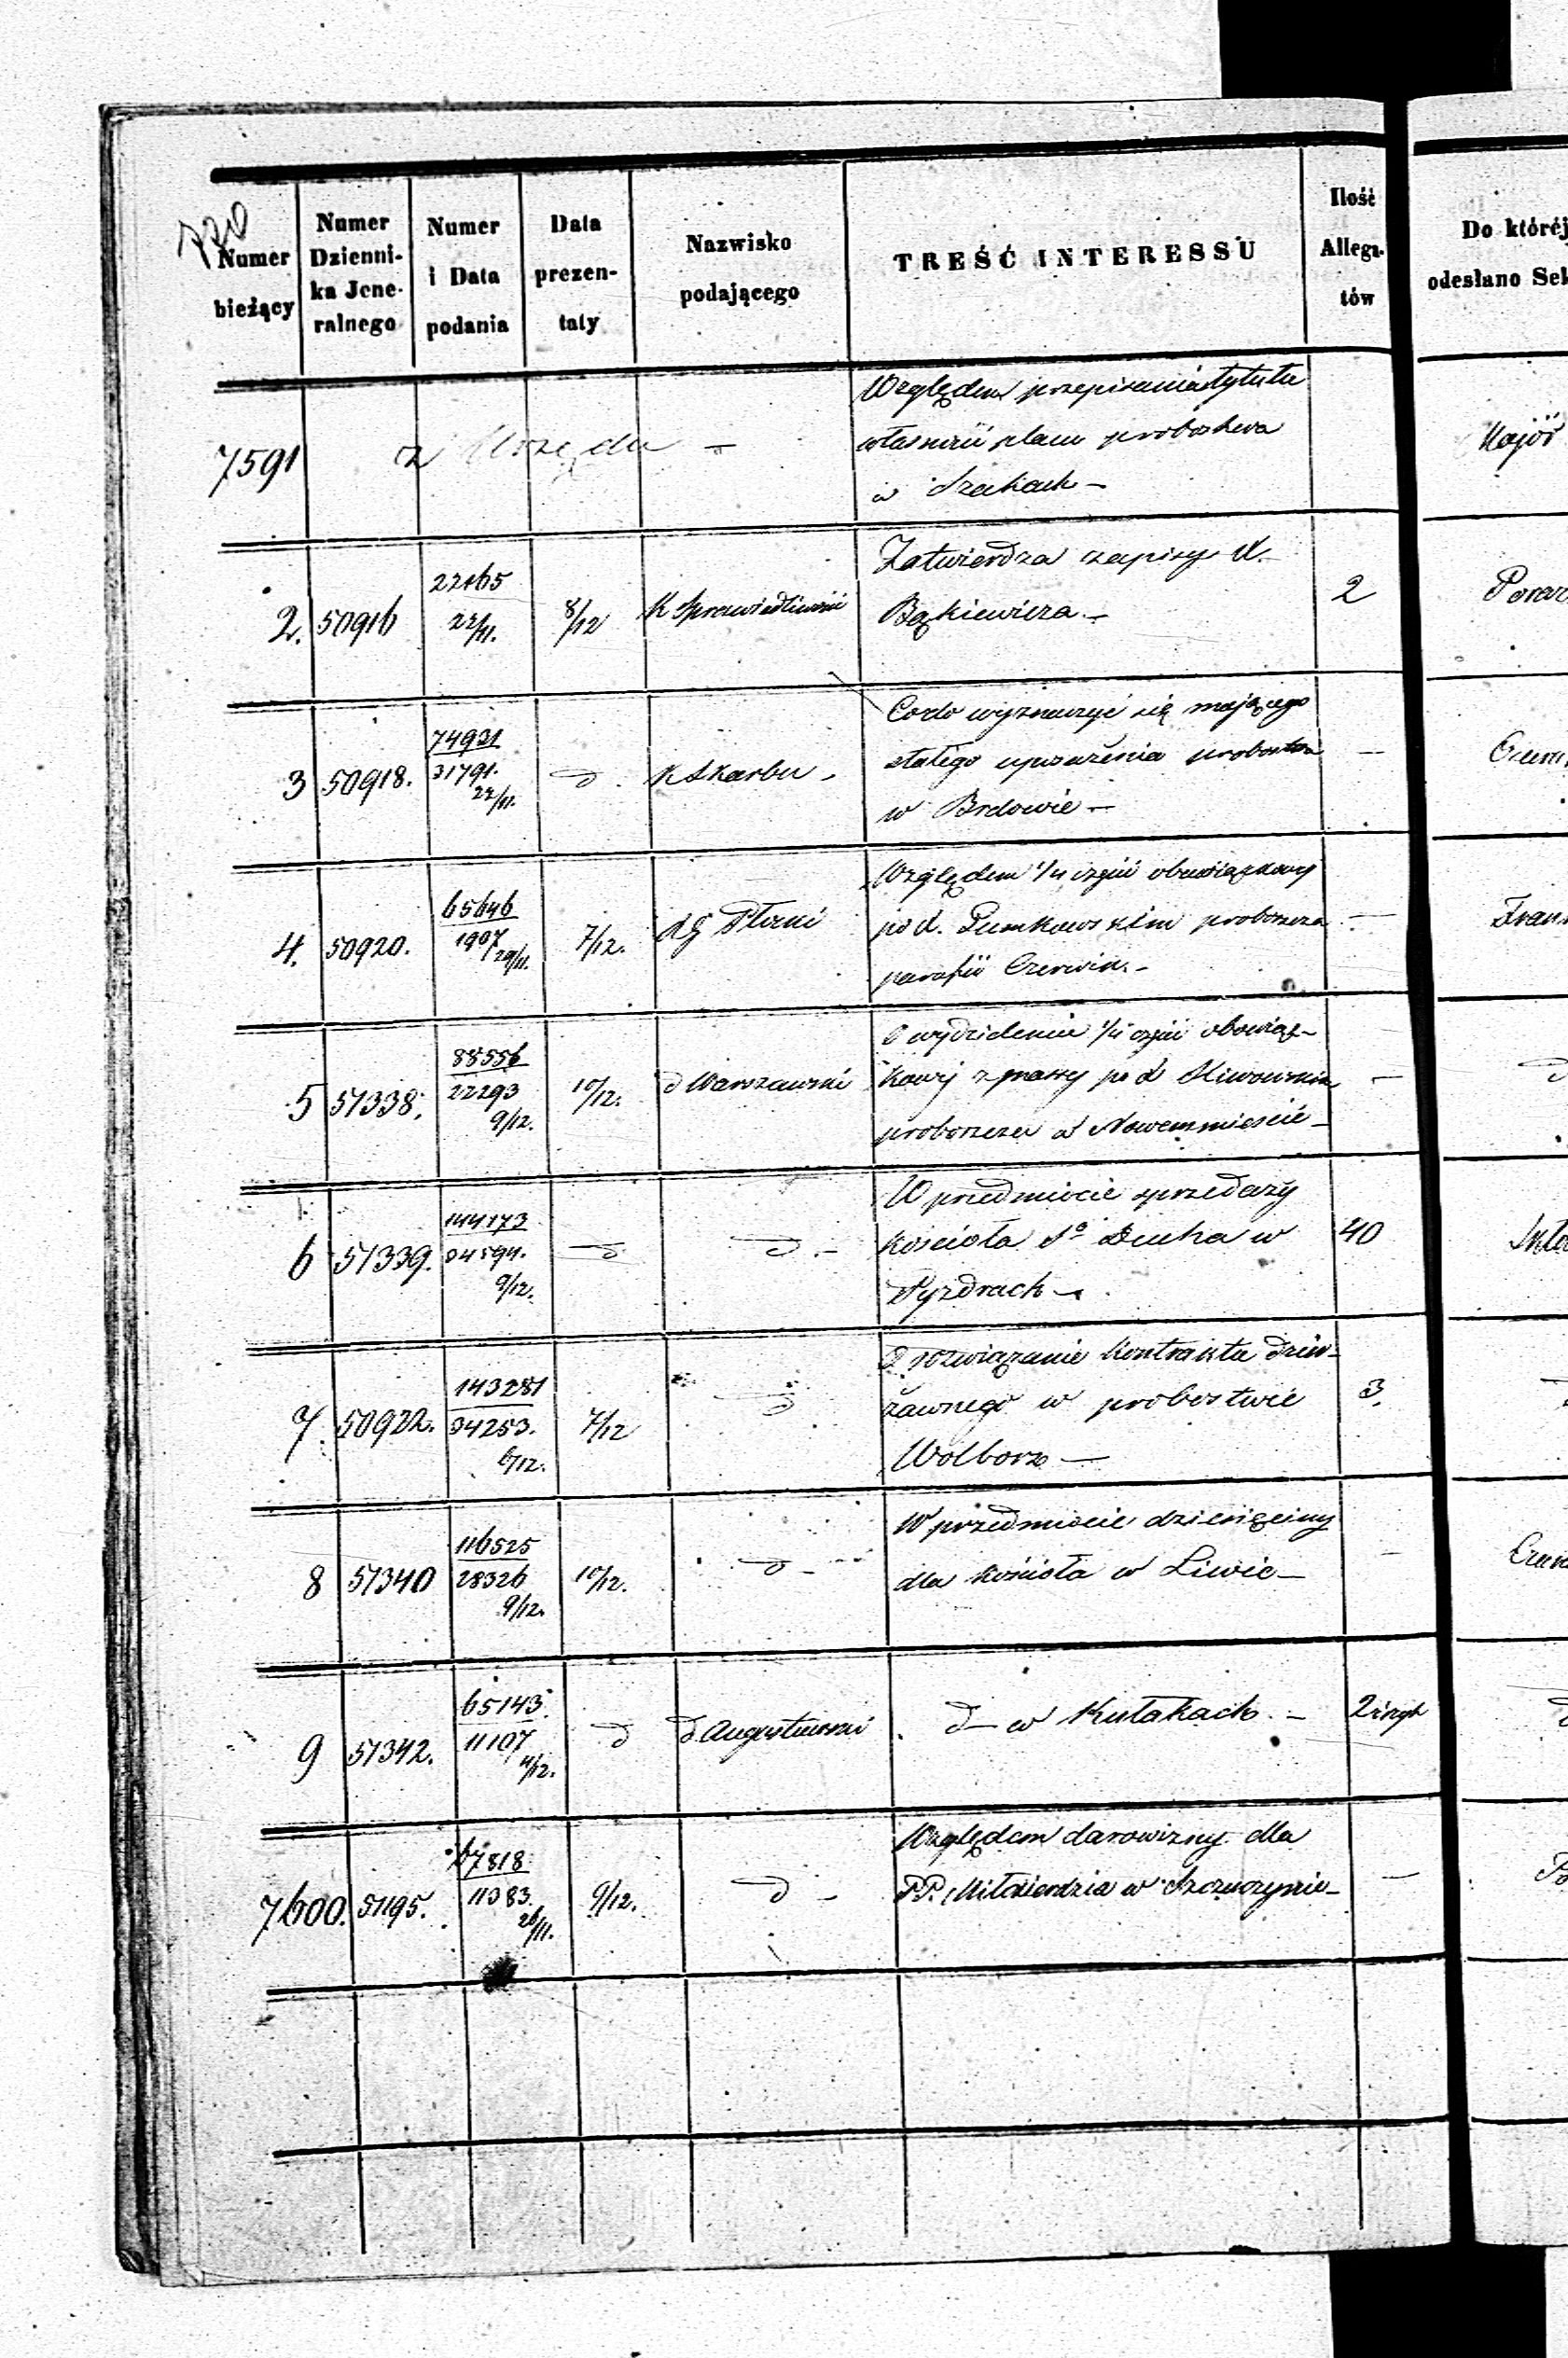 720
Numer bieżący
Numer Dzienni- ka Jene- ralnego
Numer i Data podania
Data prezen- taty
Nazwisko podającego
TREŚĆ INTERESSU
Ilość Allega- tów
Do której
odesłano Sek
7591 z Urzędu — Względem przepisania tytułu
własności placu probostwa
w Szakach —
Major
2. 50916 22165 22/11. 8/12 K Sprawiedliwości Zatwierdza zapisy X.
Bąkiewicza. — 2
3 50918. 74931 31791. 22/11. d. K Skarbu. Codo wyznaczyć się mającego
stałego uposażenia probostwa
w Brdowie — —
4. 50920. 65646 1907 29/11. 7/12. RG Płocki Względem 1/4 części obowiązkowej
po X. proboszcza
parafii Czerwin. — —
5 51338. 88556 22293 9/12. 10/12. d Warszawski O wydzielenie 1/4 części obowiąz-
kowej z massy po X
proboszczu w Nowemmieście — —
d
6 51339. 144173 34594. 9/12. d d. — W przedmiocie sprzedaży
kościoła Sº Ducha w
Pyzdrach — 40
7. 50922. 143281 34253. 6/12. 7/12 d O rozwiązanie kontraktu dzier-
żawnego w probostwie
Wolborz — 3.
8 51340 116525 28326 9/12. 10/12. d — W przedmiocie dziesięciny
dla kościoła w Liwie — —
9 51342. 65143. 11107 4/12. d d. Augustowski d — w Kulakach. — 2
d
7600. 51195. 67818 11383. 26/11. 9/12. d — Względem darowizny dla
PP. Miłosierdzia w Szczuczynie — —